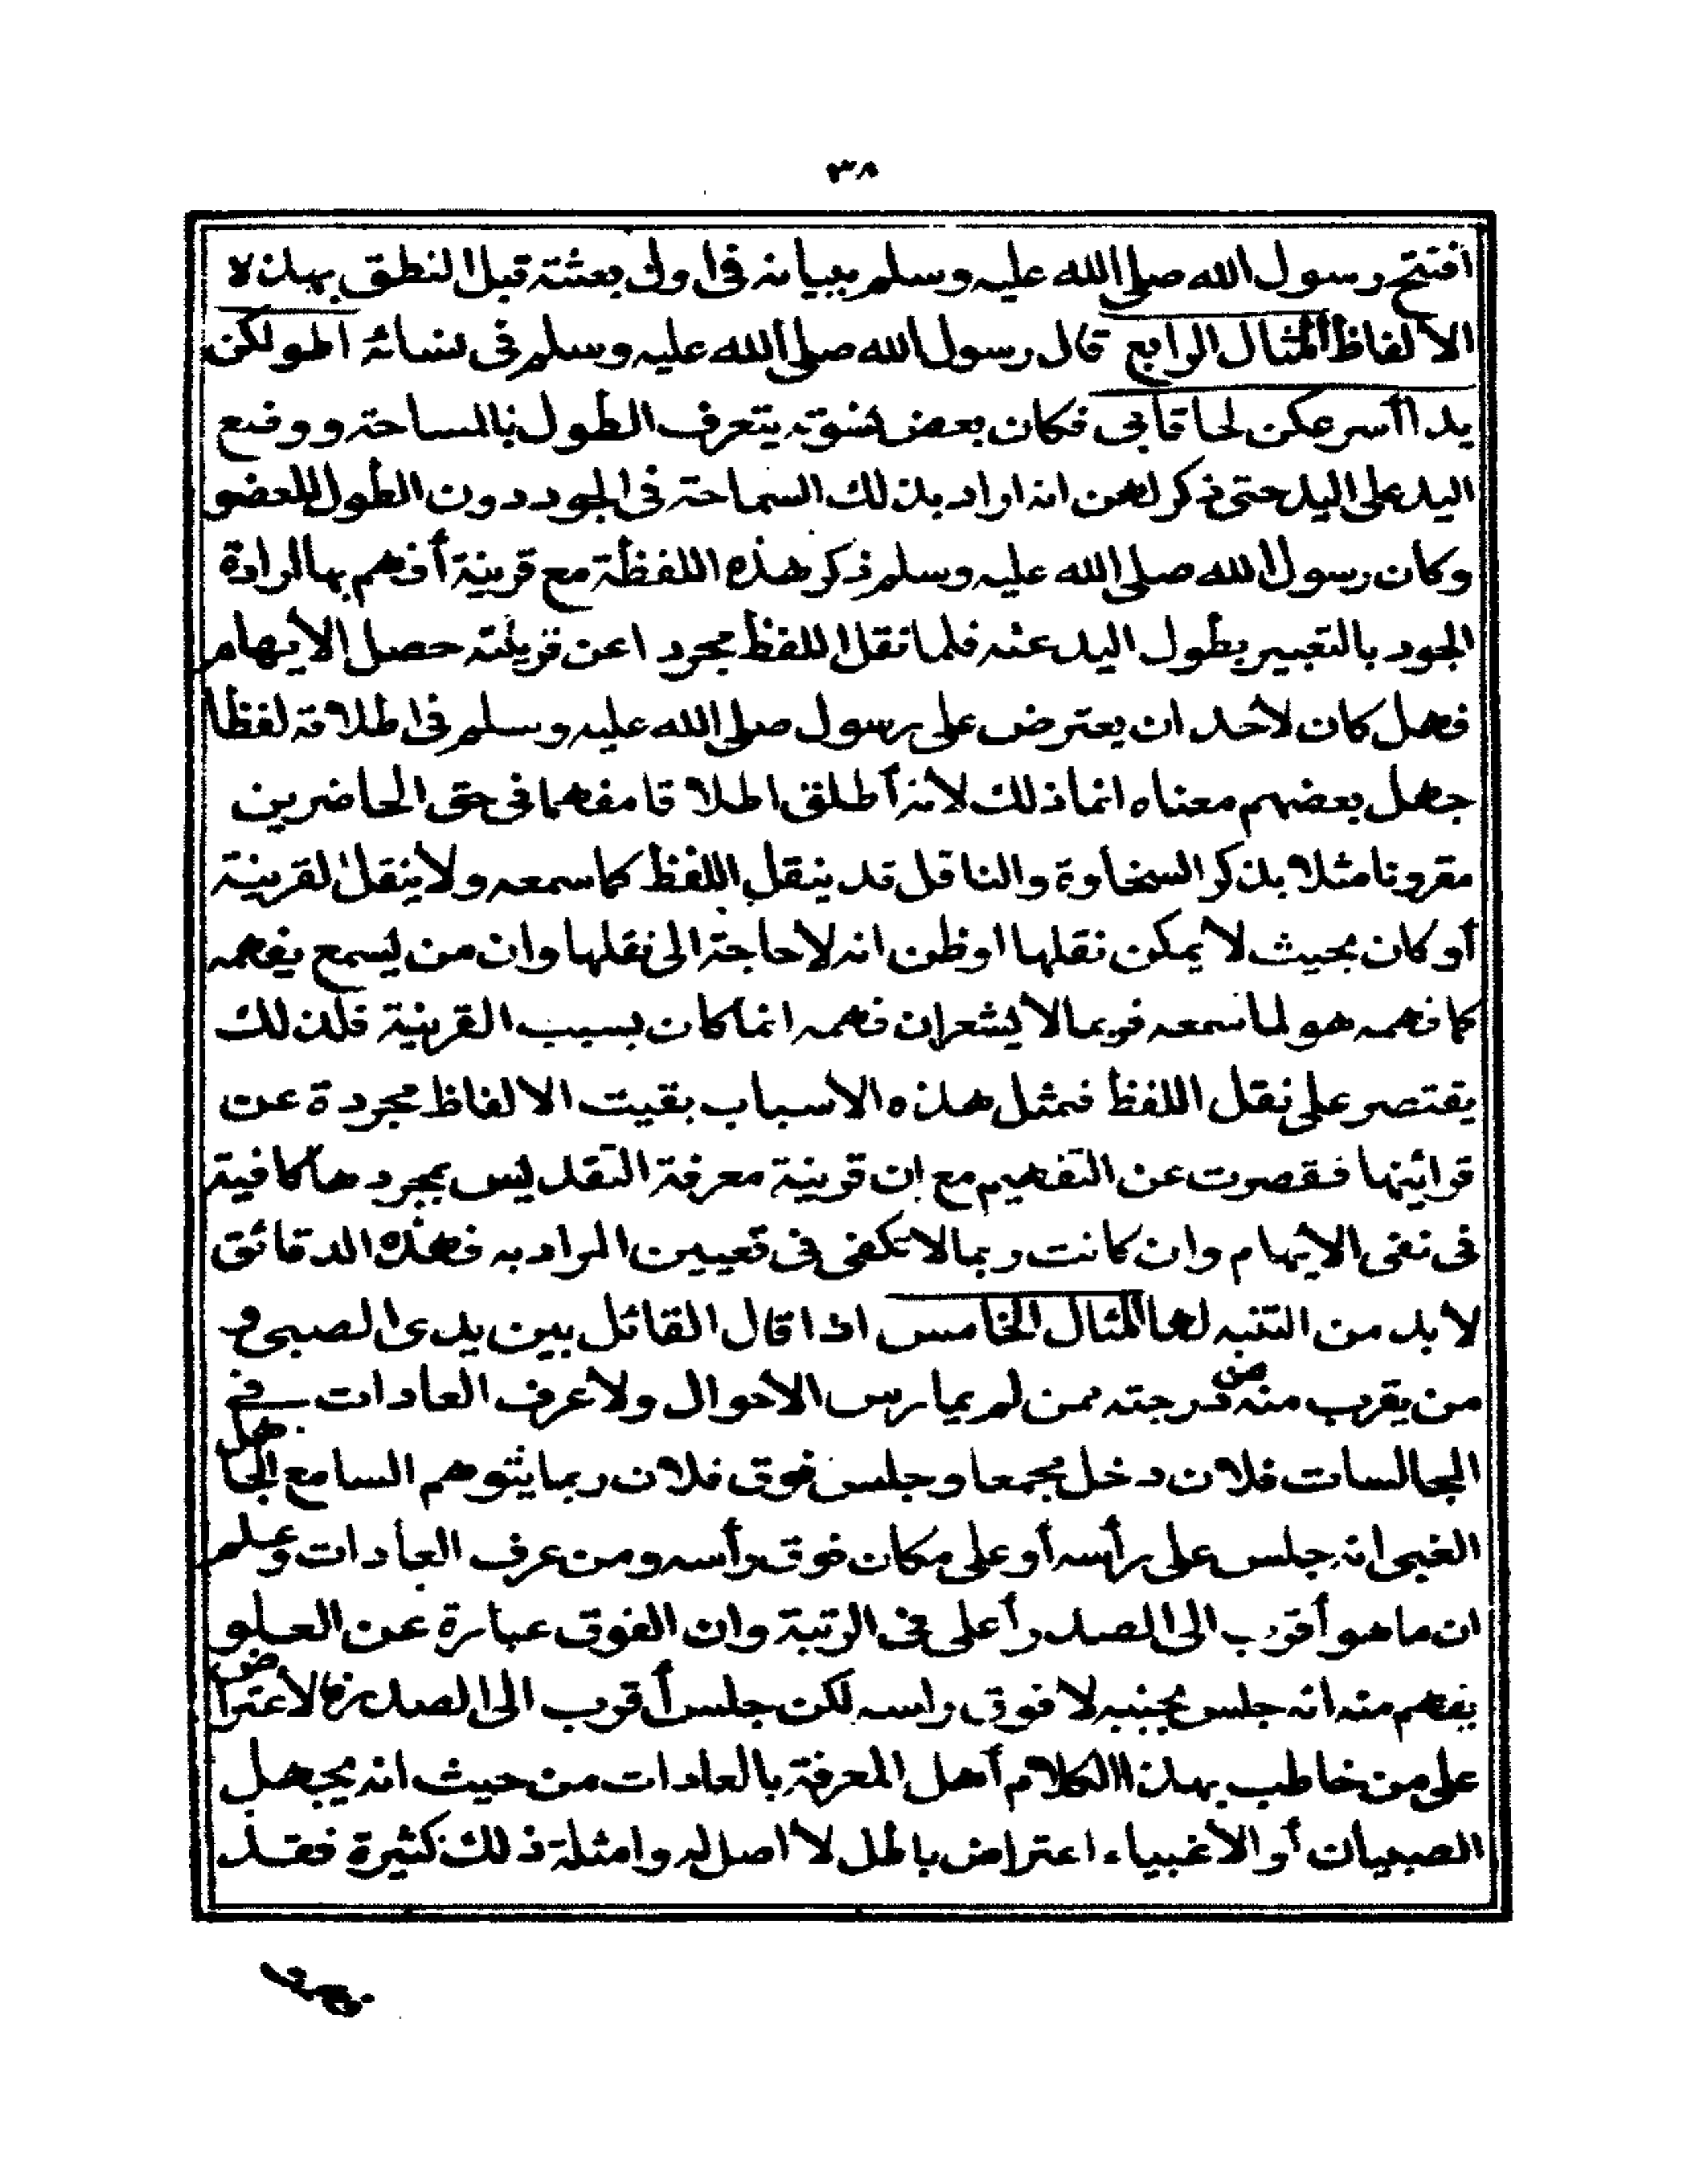 ٣٨
افتتح رسول الله صلى الله عليه وسلم ببيانه فى اول بعثته قبل النطق بهذه
الالفاظ المثال الرابع قال رسول الله صلى الله عليه وسلم فى نسائه اطولكن
يدا أسرعكن لحاقا بى فكان بعض نسوته يتعرف الطول بالمساحة ووضع
اليد على اليد حتى ذكر لهن انه اراد بذلك السماحة فى الجود دون الطول للعضو
وكان رسول الله صلى الله عليه وسلم ذكر هذه اللفظة مع قرينة أفهم بها ارادة
الجود بالتعبير بطول اليد عنه فلما نقل اللفظ مجردا عن قرينته حصل الايهام
فهل كان لأحد ان يعترض على رسول صلى الله عليه وسلم فى اطلاقه لفظا
جهل بعضهم معناه انما ذلك لانه أطلق اطلاقا مفهما فى حق الحاضرين
مقرونا مثلا بذكر السخاوة والناقل قد ينقل اللفظ كما سمعه ولا ينقل القرينة
أو كان بحيث لا يمكن نقلها او ظن انه لا حاجة الى نقلها وان من يسمع يفهمه
كما فهمه هو لما سمعه فربما لا يشعر ان فهمه انما كان بسبب القرينة فلذلك
يقتصر على نقل اللفظ فمثل هذه الاسباب بقيت الالفاظ مجردة عن
قرائنها فقصرت عن التفهيم مع ان قرينة معرفة التقديس بمجردها كافية
فى نفى الايهام وان كانت ربما لا تكفى فى تعيين المراد به فهذه الدقائق
لا بد من التنبه لها المثال الخامس اذا قال القائل بين يدى الصبى و
من يقرب منه فى درجته ممن لم يمارس الاحوال ولا عرف العادات فى
المجالسات فلان دخل مجمعا وجلس فوق فلان ربما يتوهم السامع الجاهل
الغبى انه جلس على رأسه أو على مكان فوق رأسه ومن عرف العادات وعلم
ان ما هو أقرب الى الصدر أعلى فى الرتبة وان الفوق عبارة عن العلو
يفهم منه انه جلس بجنبه لا فوق راسه لكن جلس أقرب الى الصدر فالاعتراض
على من خاطب بهذا الكلام أهل المعرفة بالعادات من حيث انه يجهل
الصبيان أو الاغبياء اعتراض باطل لا اصل له وامثلة ذلك كثيرة فقد